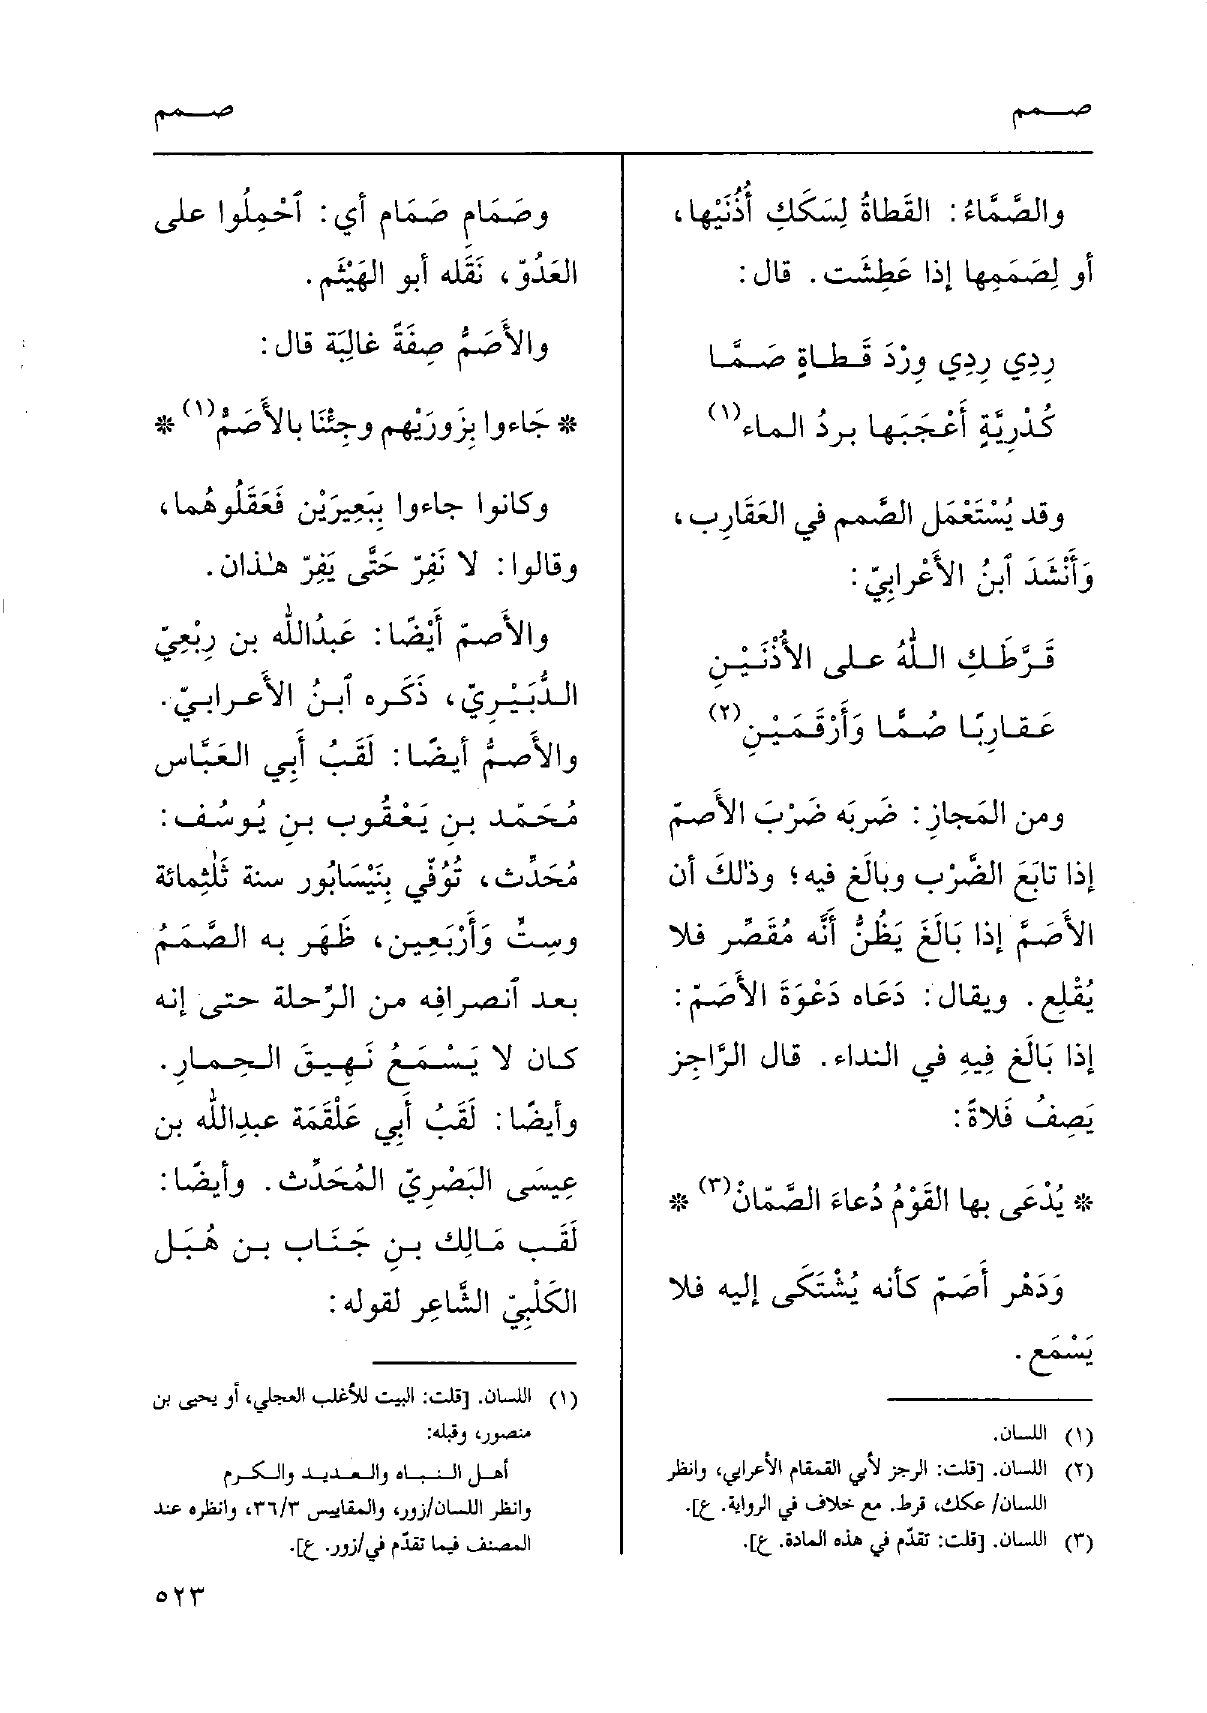 صـــمم
صـــمم
والصَّمَّاءُ: القَطاةُ لِسَكَكِ أُذُنَيْها،
أو لِصَمَمِها إذا عَطِشَت. قال:
رِدِي رِدِي وِرْدَ قَـطـاةٍ صَـمَّـا
كُدْرِيَّةٍ أَعْجَبَها بردُ الماء(١)
وقد يُسْتَعْمَل الصَّمم في العَقَارِب،
وَأَنْشَدَ ٱبنُ الأَعْرابِيّ:
قَـرَّطَـكِ الـلَّهُ عـلـى الأُذْنَـيْـنِ
عَـقـارِبًـا صُـمَّـا وَأَرْقَـمَـيْـنِ(٢)
ومن المَجازِ: ضَرَبَه ضَرْبَ الأَصمّ
إذا تابَعَ الضَّرْب وبالَغ فيه؛ وذلكَ أن
الأَصَمَّ إذا بَالَغَ يَظُنُّ أنَّه مُقَصِّر فلا
يُقْلِع. ويقال: دَعَاه دَعْوَةَ الأَصَمّ:
إذا بَالَغ فِيهِ في النداء. قال الرَّاجِز
يَصِفُ فَلاةً:
* يُدْعَى بها القَوْمُ دُعاءَ الصَّمّانْ(٣) *
وَدَهْر أَصَمّ كأنه يُشْتَكَى إليه فلا
يَسْمَع.
(١) اللسان.
(٢) اللسان. [قلت: الرجز لأبي القمقام الأعرابي، وانظر
اللسان/ عكك، قرط. مع خلاف في الرواية. ع].
(٣) اللسان. [قلت: تقدّم في هذه المادة. ع].
وصَمَامِ صَمَامِ أي: ٱحْمِلُوا على
العَدُوّ، نَقَله أبو الهَيْثَم.
والأَصَمُّ صِفَةً غالِبَة قال:
* جَاءوا بِزُورَيْهِم وجِئْنَا بالأَصَمّْ(١) *
وكانوا جاءوا بِبَعِيرَيْن فَعَقَلُوهُما،
وقالوا: لا نَفِرّ حَتَّى يَفِرّ هـٰذان.
والأَصمّ أَيْضًا: عَبدُالله بن رِبْعِيّ
الدُّبَيْـرِيّ، ذَكَـره ٱبـنُ الأَعـرابـيّ.
والأَصمُّ أيضًـا: لَقَبُ أَبِي العَبَّاس
مُحَـمَّـد بـن يَـعْـقُـوب بـن يُـوسُـف:
مُحَدِّث، تُوُفّي بِنَيْسَابُور سنة ثَلٰثِمائة
وسِتٍّ وَأَرْبَعِين، ظَهَر به الصَّمَمُ
بعد ٱنصرافِه من الرِّحلة حتى إنه
كـان لا يَـسْـمَـعُ نَـهِـيـقَ الـحِـمـارِ.
وأيضًا: لَقَبُ أَبِي عَلْقَمَة عبدِالله بن
عِيسَى البَصْرِيّ المُحَدِّث. وأيضًا:
لَقَـب مَـالِك بـنِ جَـنَـاب بـن هُبَـل
الكَلْبِيّ الشَّاعِر لقوله:
(١) اللسان. [قلت: البيت للأغلب العجلي، أو يحيى بن
منصور، وقبله:
أهـل الـنـبـاه والـعـديـد والـكـرم
وانظر اللسان/زور، والمقاييس ٣٦/٣، وانظره عند
المصنف فيما تقدّم في/زور. ع].
٥٢٣